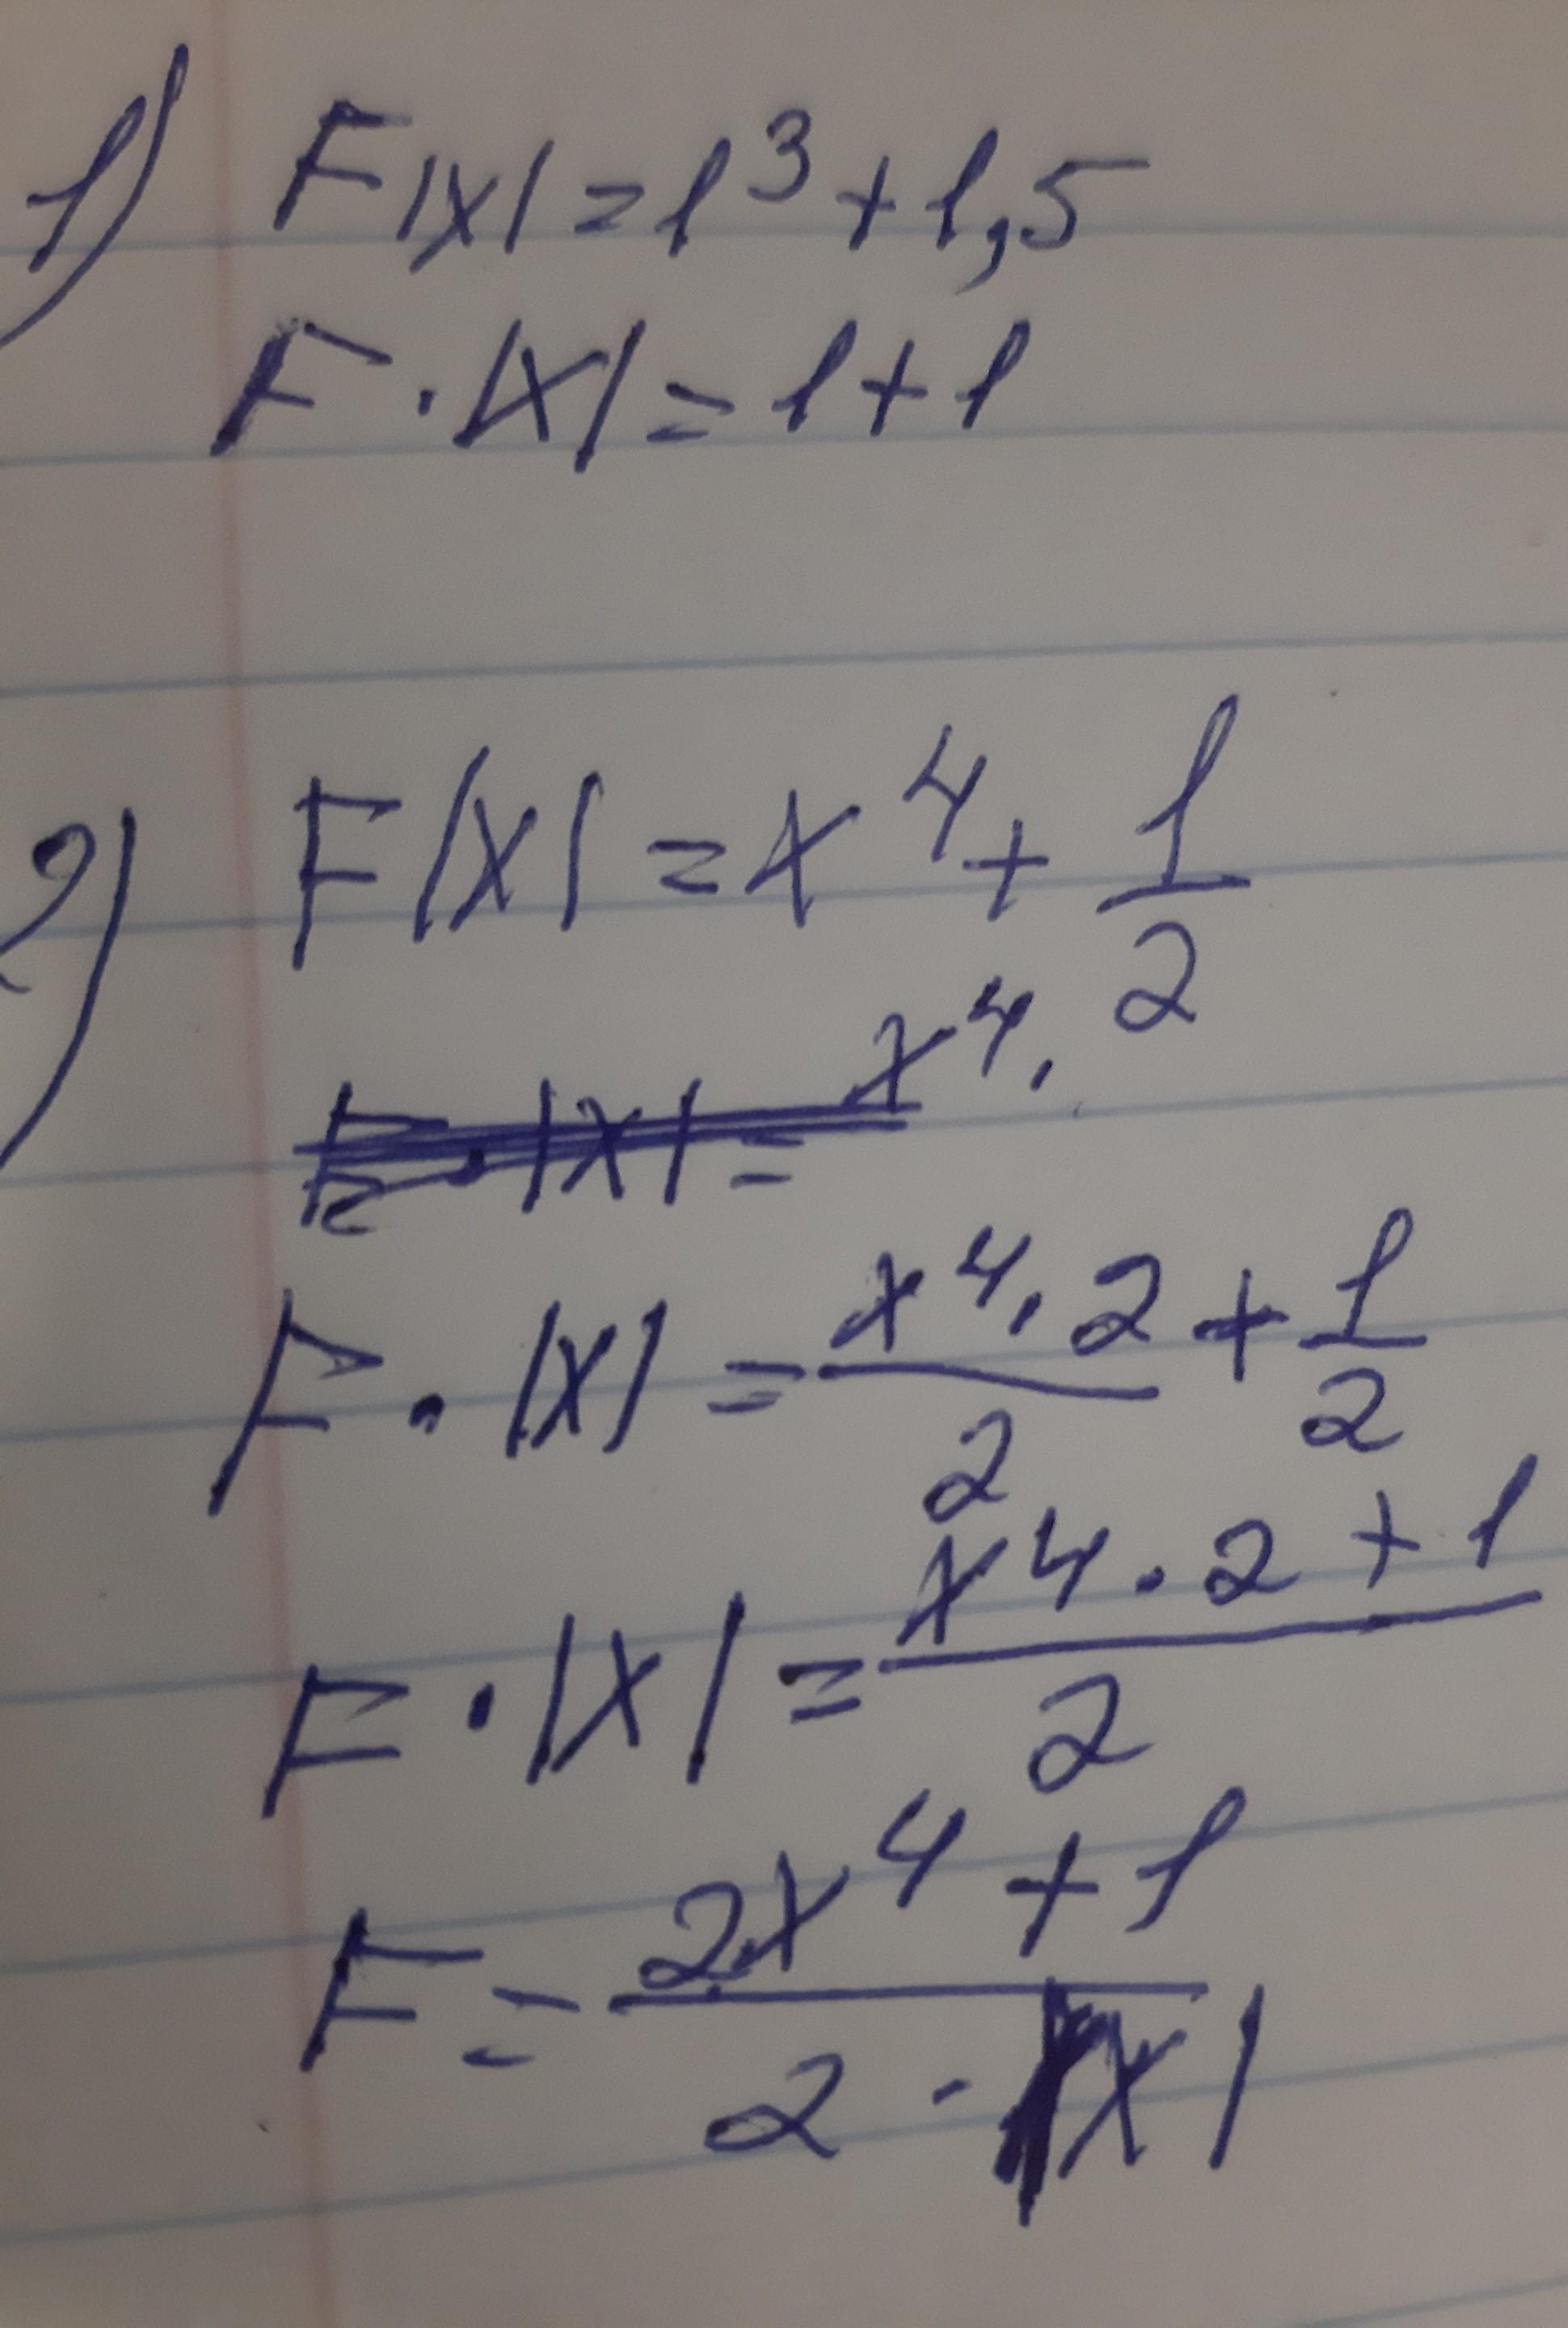 1) F|x| = 1³ + 1,5
F · |x| = 1 + 1
2) F|x| = x⁴ + 1/2
F · |x| = x⁴ ·
F · |x| = x⁴ · 2/2 + 1/2
F · |x| = x⁴ · 2 + 1/2
F = 2x⁴ + 1/2 · |x|